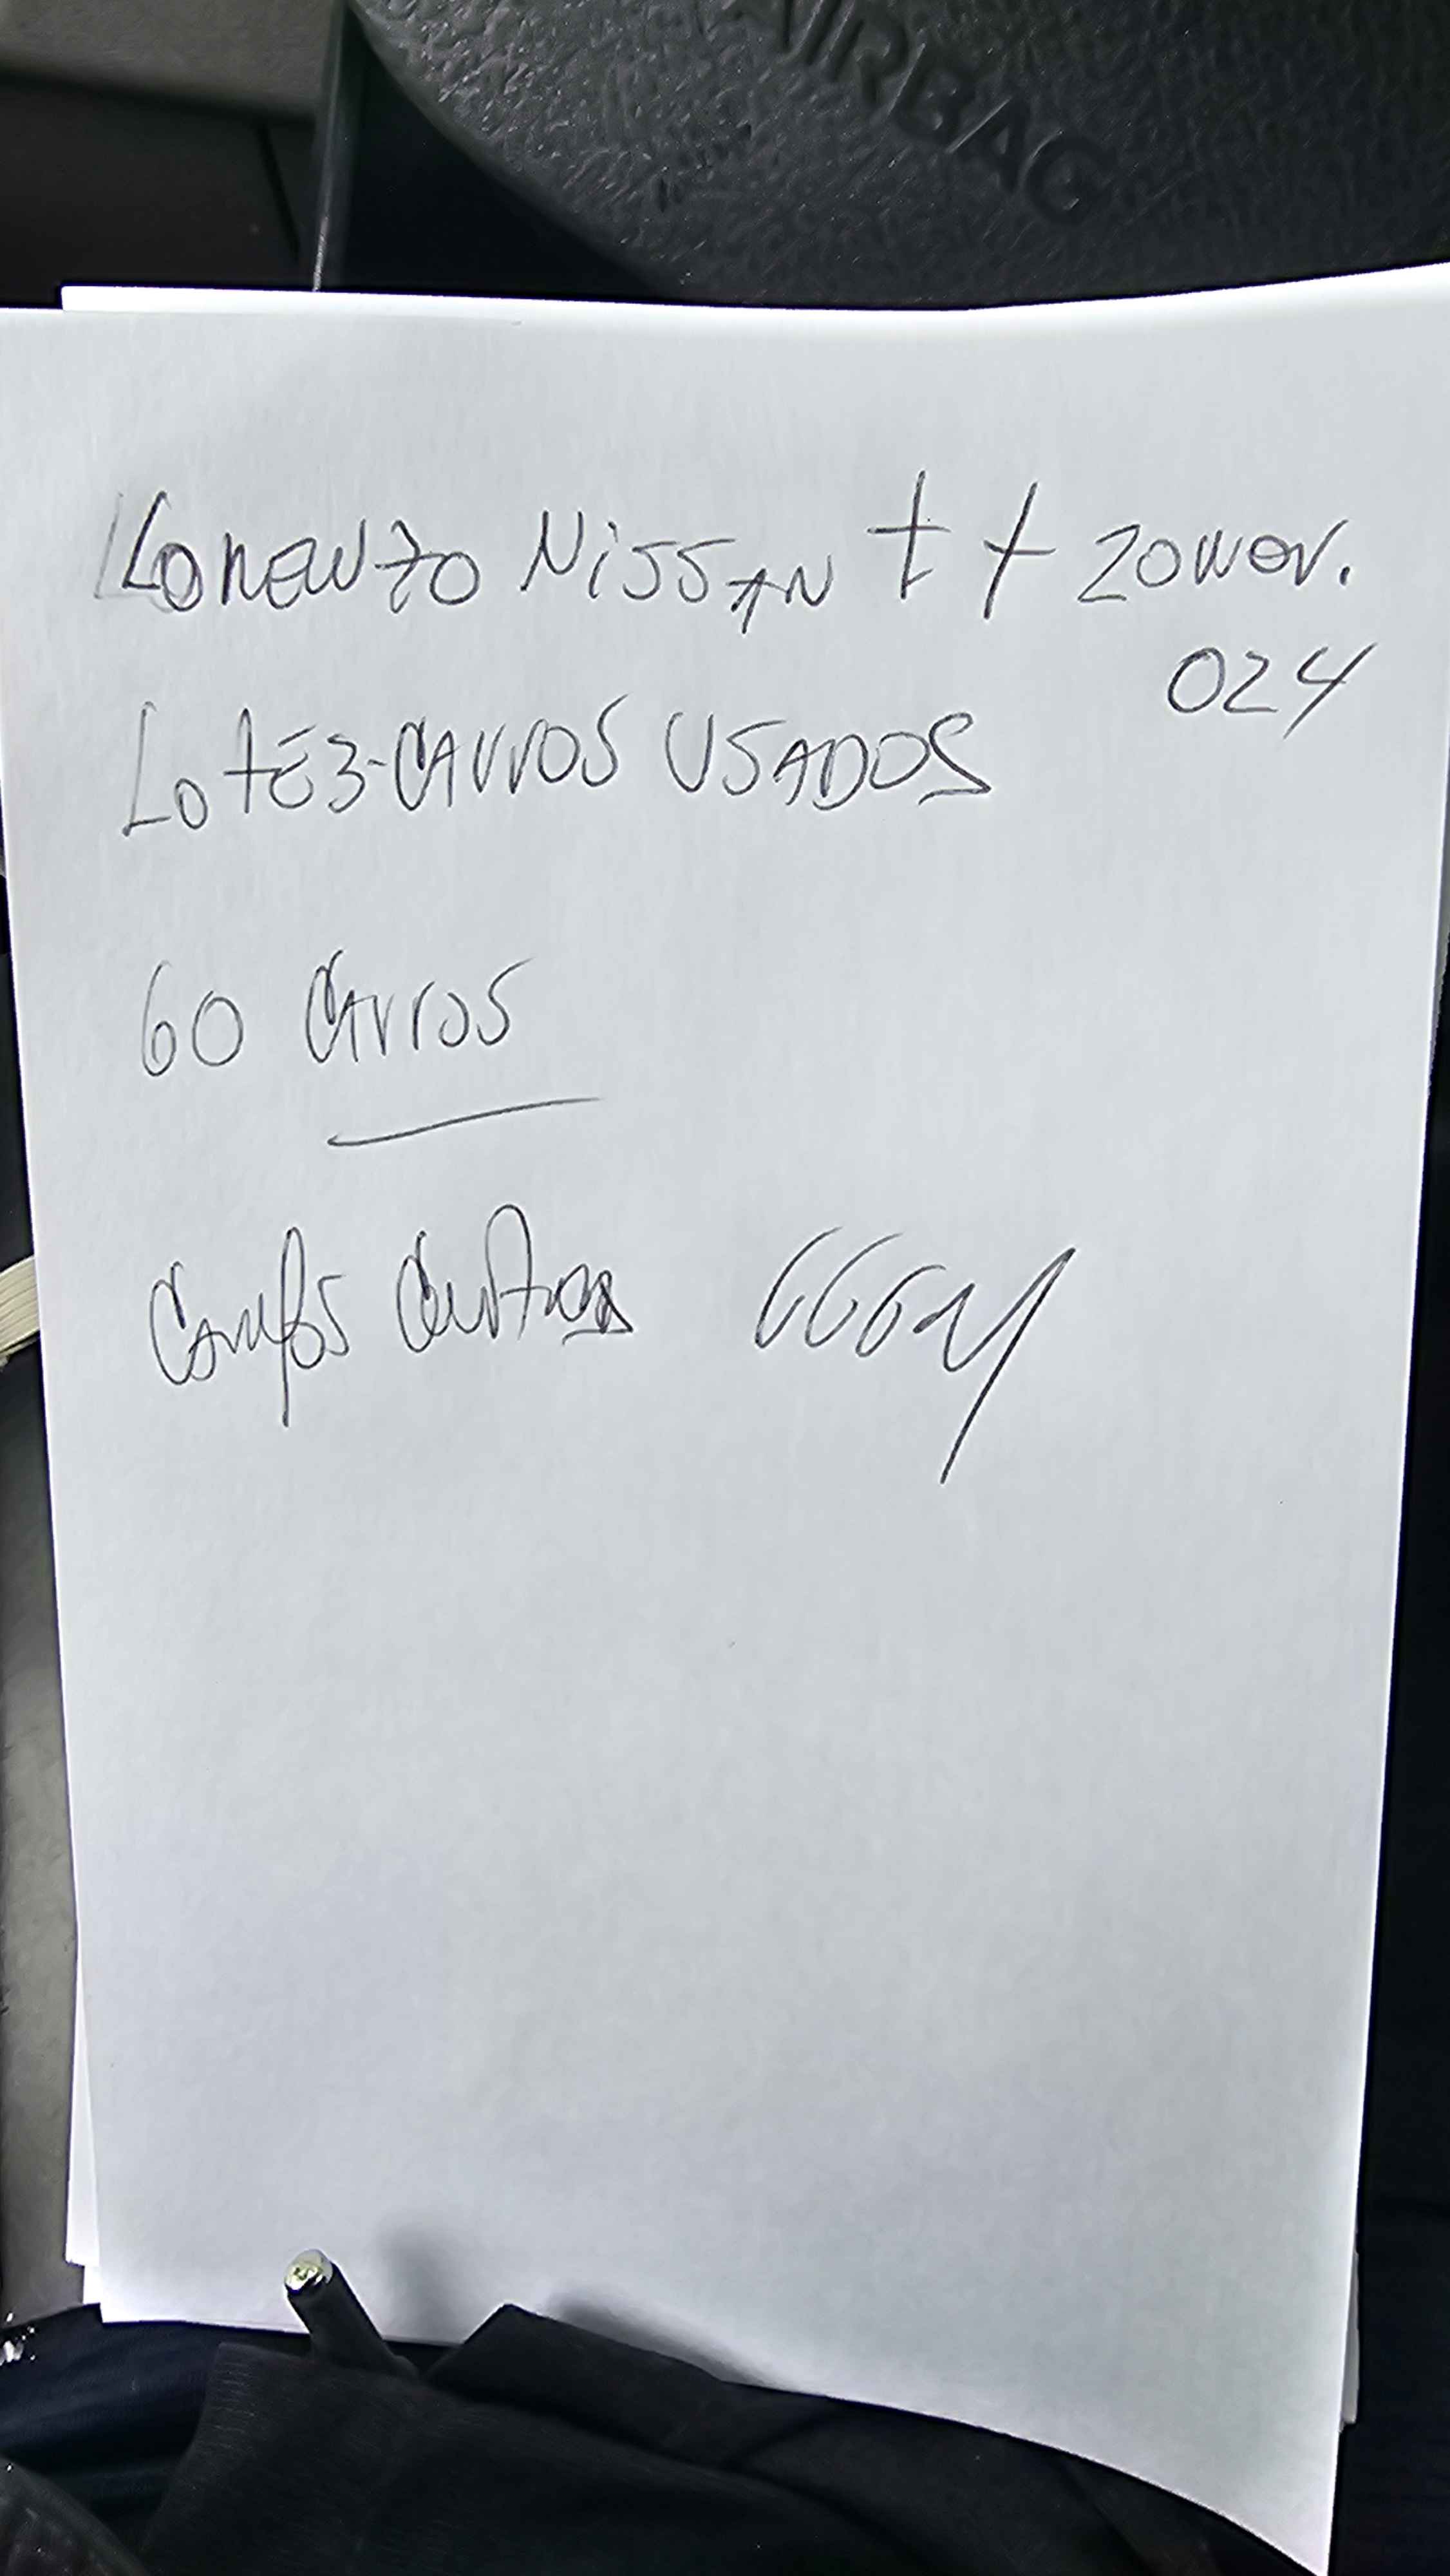 AIRBAG
Lorenzo Nissan ++ 20 nov.
024
Lote 3-Carros USADOS
60 Carros
Carlos